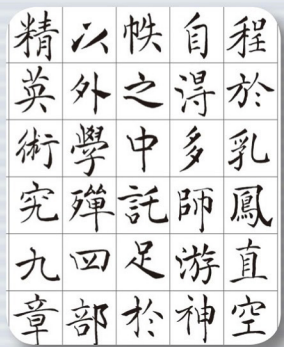 程於乳鳳直空
自得多師游神
帙之中託足於
以外學殫四部
精英術究九章